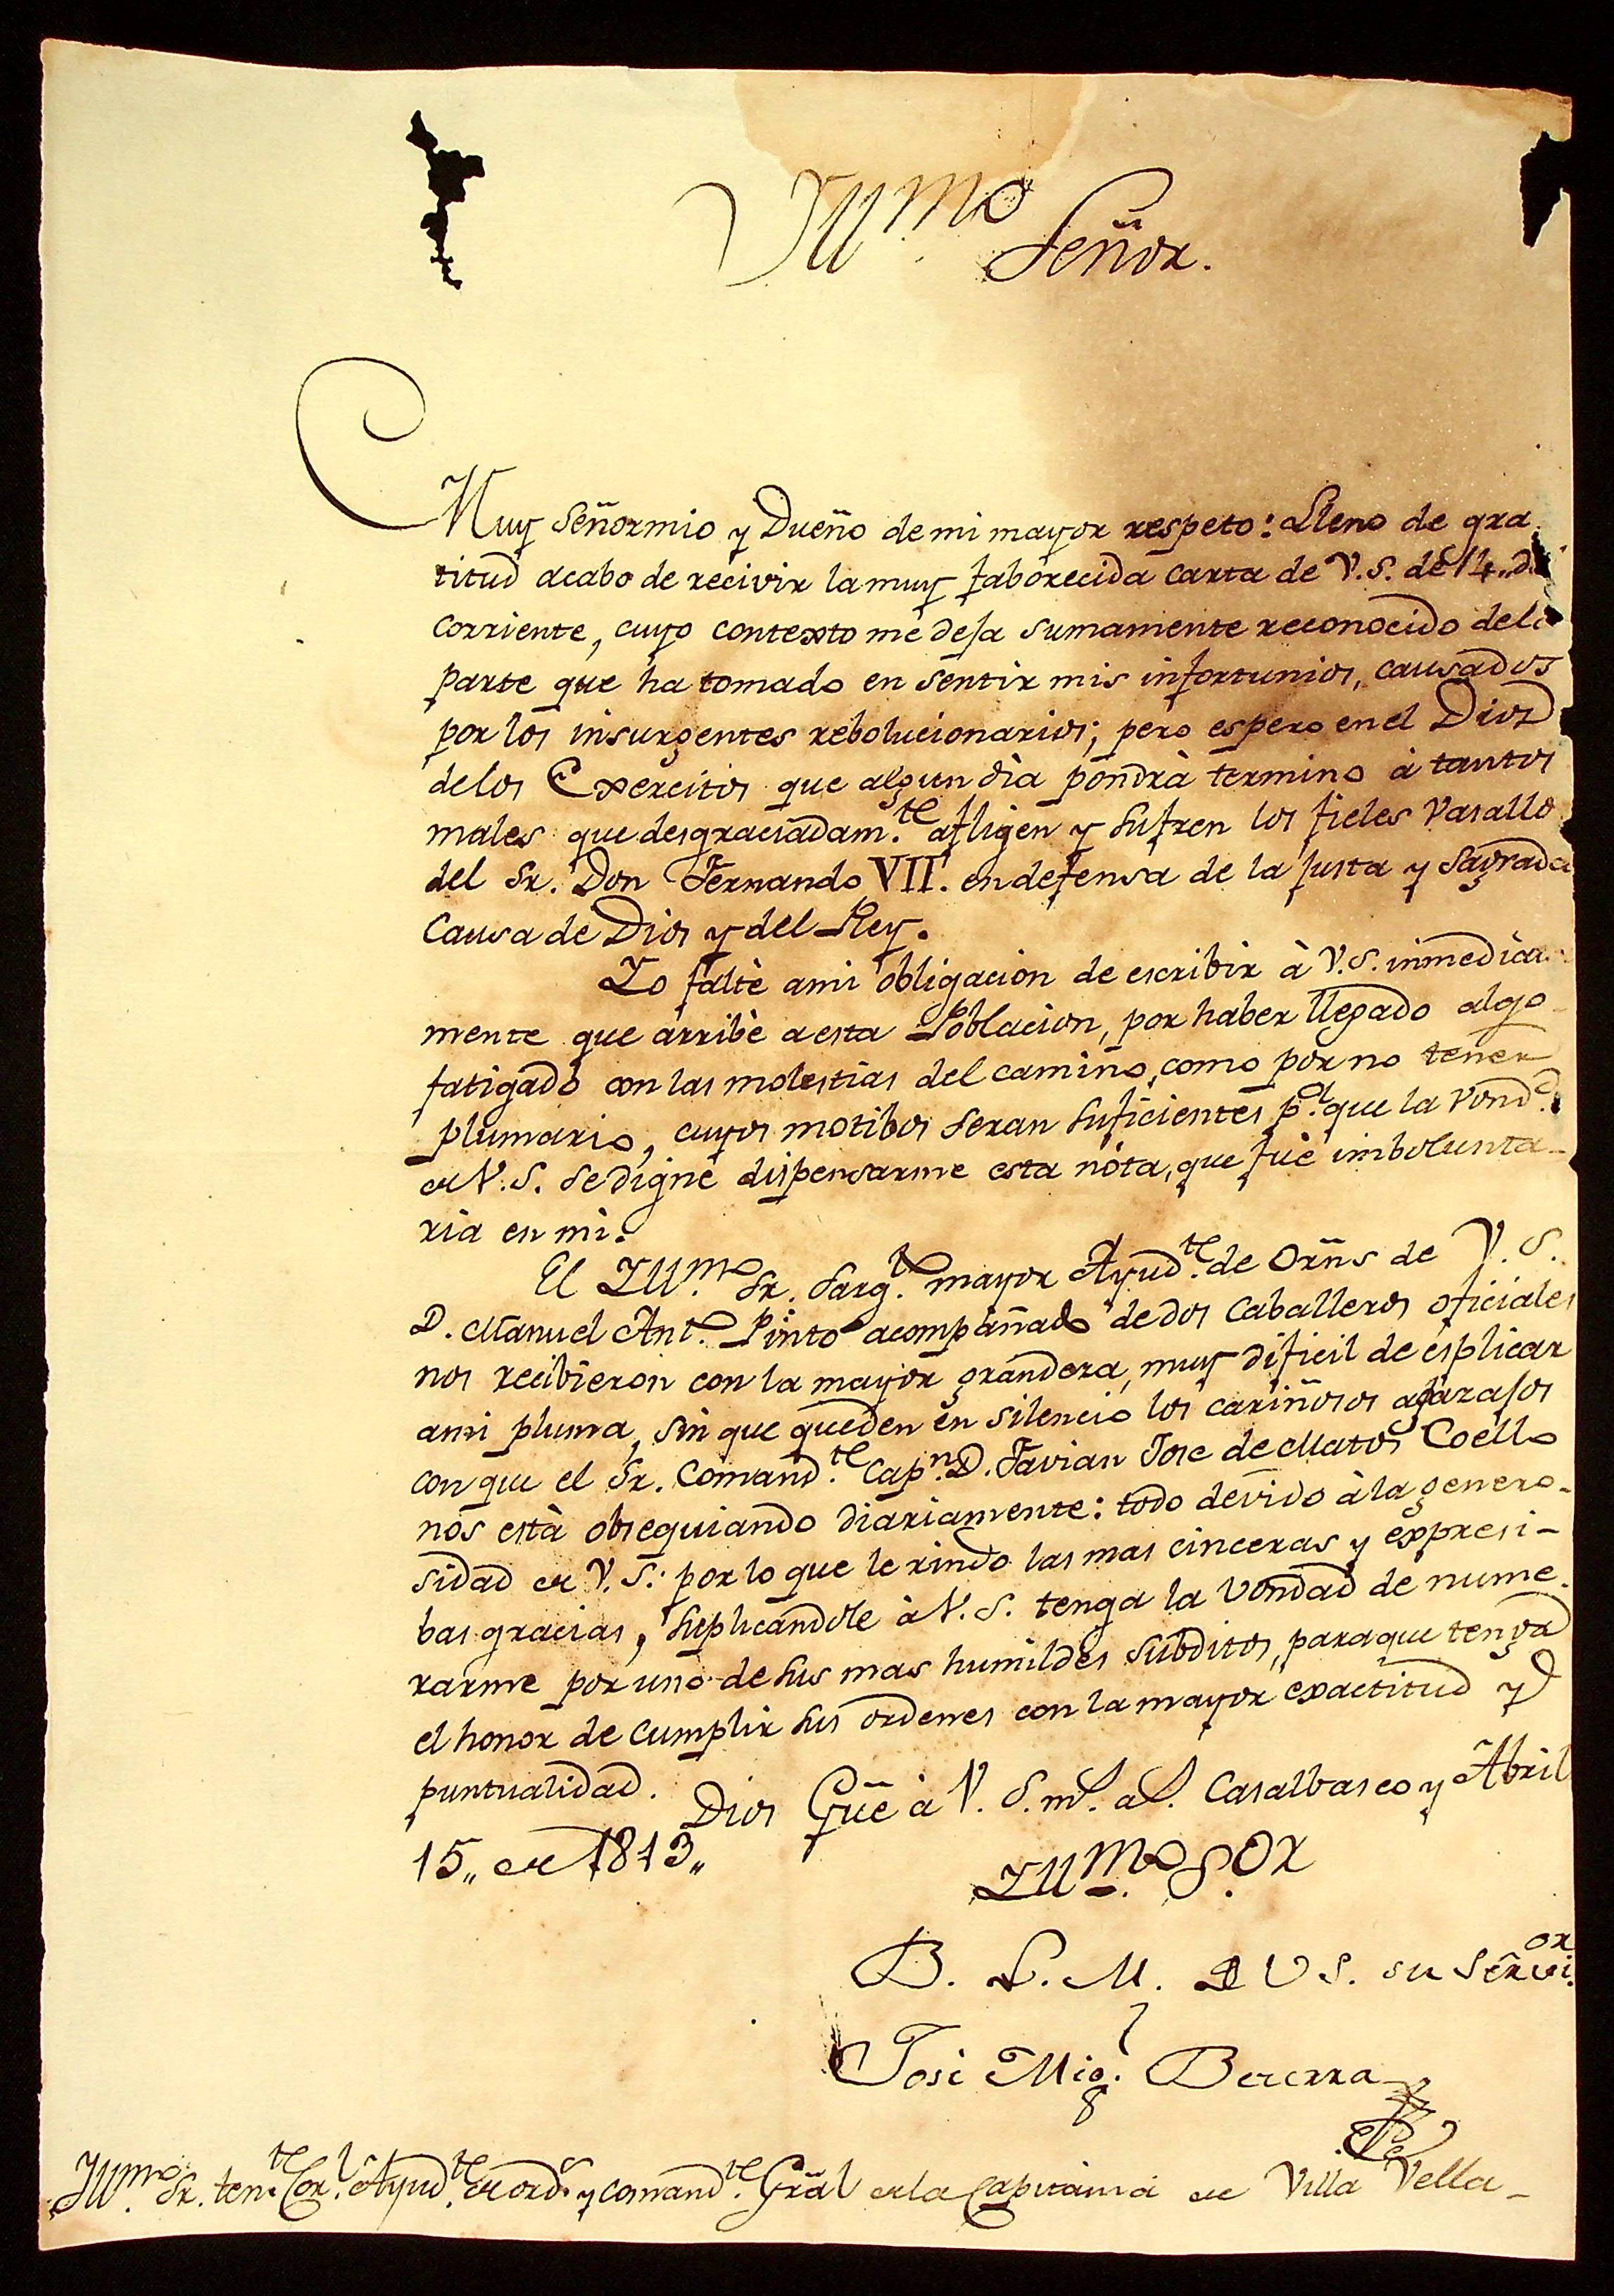 Yll.mo Señor.
Muy Señormio y Dueño de mi mayor respeto: Lleno de gra
titud acabo de recivir la muy faborecida carta de V.S. de 14,, d
corriente, cuyo contexto me deja sumamente reconocido dela
parte que ha tomado en sentir mis infortunios, causados
por los insurgentes rebolucionarios; pero espero en el Dios
delos Exercitos que algun dia pondrà termino à tantos
males que desgraciadam.te afligen y sufren los fieles Vasallo
del Sr. Don Fernando VII. en defensa de la justa y Sagrada
Causa de Dios y del Rey.
Yo faltè ami obligacion de escribir à V.S. inmedia
mente que arribè a esta Poblacion, por haber llegado algo
fatigado con las molestias del camino, como por no tener
plumario, cuyos motibos seran suficientes p.a que la Vond.d
de V.S. se digne dispensarme esta nota, que fuè imbolunta-
ria en mi.
El Yll.mo Sr. Sarg.to mayor Ayud.te de Orñs de V.S.
D. Manuel Ant.o Pinto acompañado de dos Caballeros oficiales
nos recibieron con la mayor grandeza, muy dificil de esplicar
ami pluma, sin que queden en silencio los cariñosos agazajos
con que el Sr. Comand.te Cap.n D. Favian Jose de Matos Coello
nos està obsequiando diariamente: todo devido à la genero-
sidad de V.S.: por lo que le rindo las mas cinceras y expresi-
bas gracias, suplicandole à V.S. tenga la Vondad de nume-
rarme por uno de sus mas humildes subditos, paraque tenga
el honor de cumplir sus ordenes con la mayor exactitud y
puntualidad. Dios Gūe à V.S. m.s a.s. Casalbasco y Abril
15,, de 1813,,
Yll.mo S.or
B. L. M. D VS. su Servi.or
Josè Mig.l Becerra
Yll.mo Sr. ten.te Cor.l Ayud.te de ord.s y comand.te Grāl de la Capitania de Villa Vella-